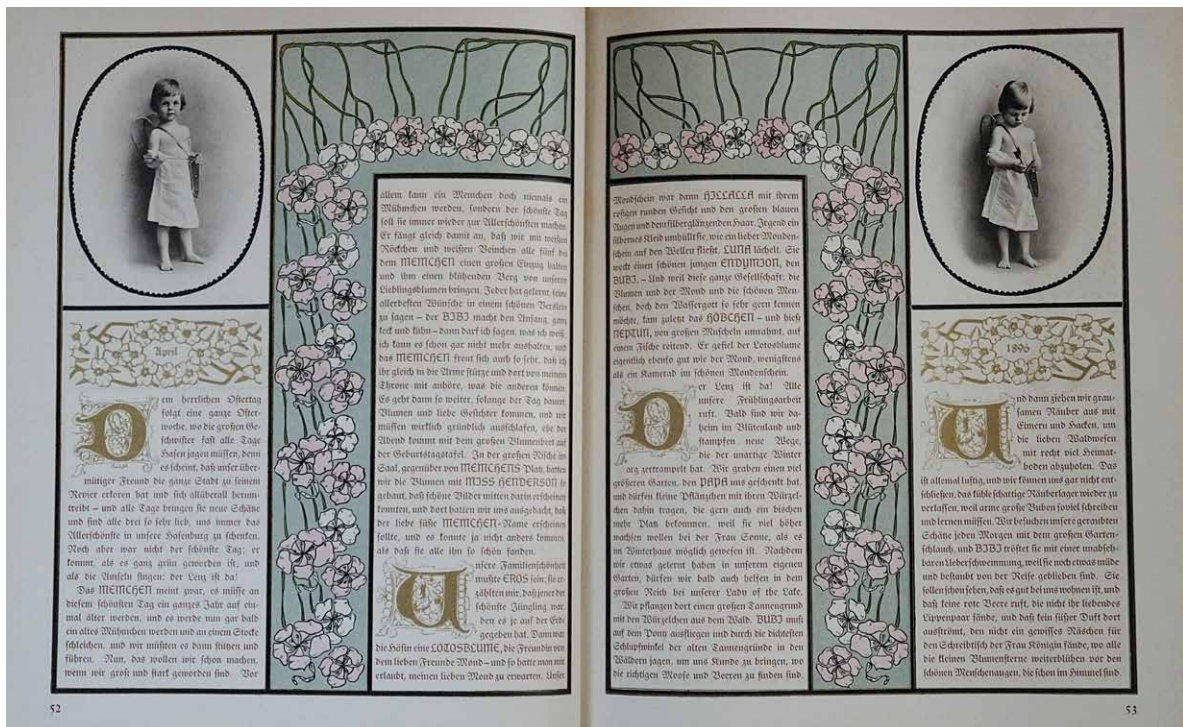 April
Dem herrlichen Ostertag
folgt eine ganze Oster-
woche, wo die großen Ge-
schwister fast alle Tage
Hasen jagen müssen, denn
es scheint, daß unser über-
mütiger Freund die ganze Stadt zu seinem
Revier erkoren hat und sich allüberall herum-
treibt – und alle Tage bringen sie neue Schätze
und sind alle drei so sehr lieb, uns immer das
Allerschönste in unsere Hasenburg zu schenken.
Noch aber war nicht der schönste Tag; er
kommt, als es ganz grün geworden ist, und
als die Amseln singen: der Lenz ist da!
Das MEMCHEN meint zwar, es müsse an
diesem schönsten Tag ein ganzes Jahr auf ein-
mal älter werden, und es werde nun gar bald
ein altes Mühmchen werden und an einem Stocke
schleichen, und wir müßten es dann stützen und
führen. Nun, das wollen wir schon machen,
wenn wir groß und stark geworden sind. Vor
52
allem kann ein Memchen doch niemals ein
Mühmchen werden, sondern der schönste Tag
soll sie immer wieder zur Allerschönsten machen.
Er fängt gleich damit an, daß wir mit weißen
Röckchen und weißen Beinchen alle fünf bei
dem MEMCHEN einen großen Einzug halten
und ihm einen blühenden Berg von unseren
Lieblingsblumen bringen. Jeder hat gelernt, seine
allerbesten Wünsche in einem schönen Verslein
zu sagen – der BIBI macht den Anfang, ganz
keck und kühn – dann darf ich sagen, was ich weiß,
ich kann es schon gar nicht mehr aushalten, und
das MEMCHEN freut sich auch so sehr, daß ich
ihr gleich in die Arme stürze und dort von meinem
Throne mit anhöre, was die anderen können.
Es geht dann so weiter, solange der Tag dauert,
Blumen und liebe Gesichter kommen, und wir
müssen wirklich gründlich ausschlafen, ehe der
Abend kommt mit dem großen Blumenbeet auf
der Geburtstagstafel. In der großen Nische im
Saal, gegenüber von MEMCHENS Platz, hatten
wir die Blumen mit MISS HENDERSON so
gebaut, daß schöne Bilder mitten darin erscheinen
konnten, und dort hatten wir uns ausgedacht, daß
der liebe süße MEMCHEN-Name erscheinen
sollte, und es konnte ja nicht anders kommen,
als daß sie alle ihn so schön fanden.
Unsere Familienschönheit
mußte EROS sein; sie er-
zählten mir, daß jener der
schönste Jüngling war,
den es je auf der Erde
gegeben hat. Dann war
die Häsin eine LOTOSBLUME, die Freundin von
dem lieben Freunde Mond – und so hatte man mir
erlaubt, meinen lieben Mond zu erwarten. Unser
Mondschein war dann HILLALLA mit ihrem
rosigen runden Gesicht und den großen blauen
Augen und dem silberglänzenden Haar. Irgend ein
silbernes Kleid umhüllt sie, wie ein lieber Monden-
schein auf den Wellen fließt. LUNA lächelt. Sie
weckt einen schönen jungen ENDYMION, den
BUBI. – Und weil diese ganze Gesellschaft: die
Blumen und der Mond und die schönen Men-
schen, doch den Wassergott so sehr gern kennen
möchte, kam zuletzt das HÖBCHEN – und hieß
NEPTUN, von großen Muscheln umrahmt, auf
einem Fische reitend. Er gefiel der Lotosblume
eigentlich ebenso gut wie der Mond, wenigstens
als ein Kamerad im schönen Mondenschein.
Der Lenz ist da! Alle
unsere Frühlingsarbeit
ruft. Bald sind wir da-
heim im Blütenland und
stampfen neue Wege,
die der unartige Winter
arg zertrampelt hat. Wir graben einen viel
größeren Garten, den PAPA uns geschenkt hat,
und dürfen kleine Pflänzchen mit ihren Würzel-
chen dahin tragen, die gern auch ein bischen
mehr Platz bekommen, weil sie viel höher
wachsen wollen bei der Frau Sonne, als es
im Winterhaus möglich gewesen ist. Nachdem
wir etwas gelernt haben in unserem eigenen
Garten, dürfen wir bald auch helfen in dem
großen Reich bei unserer Lady of the Lake.
Wir pflanzen dort einen großen Tannengrund
mit den Würzelchen aus dem Wald. BUBI muß
auf dem Pony ausfliegen und durch die dichtesten
Schlupfwinkel der alten Tannengründe in den
Wäldern jagen, um uns Kunde zu bringen, wo
die richtigen Moose und Beeren zu finden sind.
1896
Und dann ziehen wir grau-
samen Räuber aus mit
Eimern und Hacken, um
die lieben Waldwesen
mit recht viel Heimat-
boden abzuholen. Das
ist allemal lustig, und wir können uns gar nicht ent-
schließen, das kühle schattige Räuberlager wieder zu
verlassen, weil arme große Buben soviel schreiben
und lernen müssen. Wir besuchen unsere geraubten
Schätze jeden Morgen mit dem großen Garten-
schlauch, und BIBI tröstet sie mit einer unabseh-
baren Ueberschwemmung, weil sie noch etwas müde
und bestaubt von der Reise geblieben sind. Sie
sollen schon sehen, daß es gut bei uns wohnen ist, und
daß keine rote Beere ruft, die nicht ihr liebendes
Lippenpaar fände, und daß kein süßer Duft dort
ausströmt, den nicht ein gewisses Näschen für
den Schreibtisch der Frau Königin fände, wo alle
die kleinen Blumensterne weiterblühen vor den
schönen Menschenaugen, die schon im Himmel sind.
53